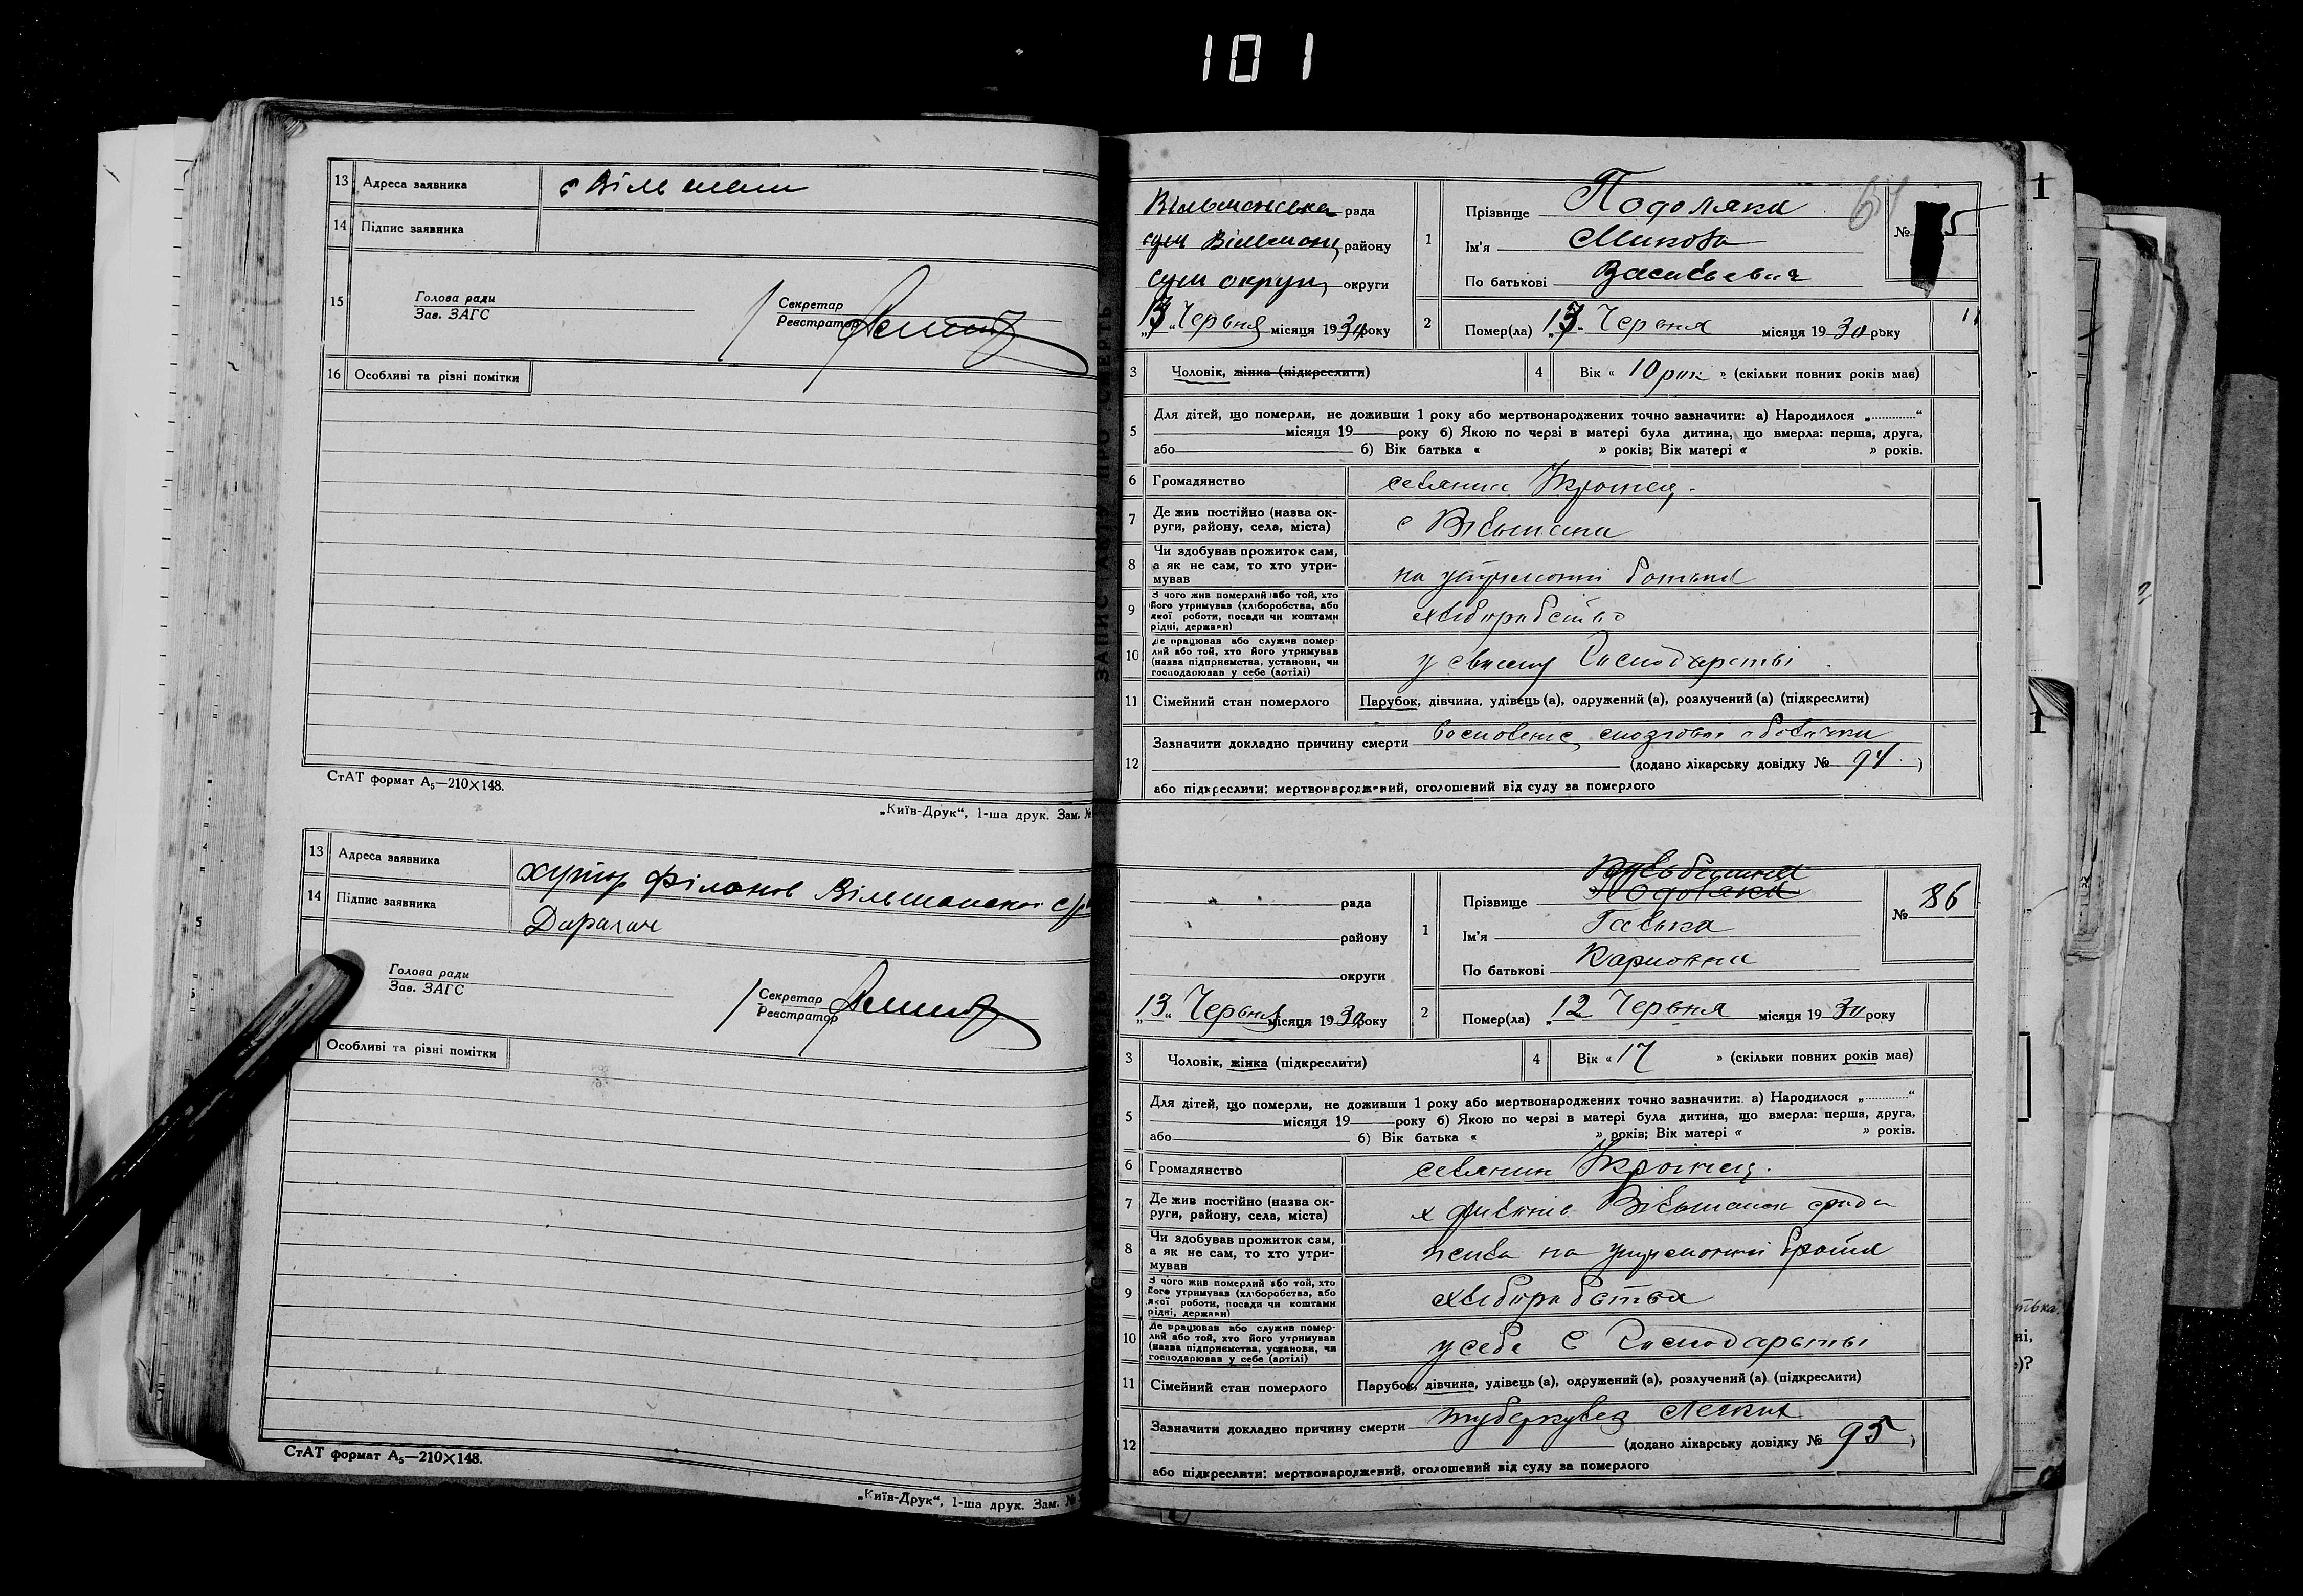 101
13 Адреса заявника с Вільшани
14 Підпис заявника
15 Голова ради
Зав. ЗАГС
Секретар
Реєстратор
16 Особливі та різні помітки
СтАТ формат А₅—210×148.
„Київ-Друк“, 1-ша друк. Зам. №
13 Адреса заявника хутор Філонов Вільшанської
14 Підпис заявника
Голова ради
Зав. ЗАГС
Секретар
Реєстратор
Особливі та різні помітки
СтАТ формат А₅—210×148.
„Київ-Друк“, 1-ша друк. Зам. №
64
Вільшанська рада
району
округи
„13“ Червня місяця 1930 року
1 Прізвище Подоляка
Ім'я Микола
По батькові Васильевич
№ 5
2 Помер(ла) „13“ Червня місяця 1930 року
3 Чоловік, жінка (підкреслити)
4 Вік « 10 рік » (скільки повних років має)
5 Для дітей, що померли, не доживши 1 року або мертвонароджених точно зазначити: а) Народилося „...........“
місяця 19 року б) Якою по черзі в матері була дитина, що вмерла: перша, друга,
або б) Вік батька « » років; Вік матері « » років.
6 Громадянство селянин
7 Де жив постійно (назва ок-
руги, району, села, міста) с Вільшана
8 Чи здобував прожиток сам,
а як не сам, то хто утри-
мував на утриманні батька
9 З чого жив померлий або той, хто
його утримував (хліборобства, або
якої роботи, посади чи коштами
рідні, держави) хліборобство
10 Де працював або служив помер-
лий або той, хто його утримував
(назва підприємства, установи, чи
господарював у себе (артілі) у своєму господарстві
11 Сімейний стан померлого Парубок, дівчина, удівець (а), одружений (а), розлучений (а) (підкреслити)
12 Зазначити докладно причину смерти
(додано лікарську довідку № 94 )
або підкреслити: мертвонароджений, оголошений від суду за померлого
рада
району
округи
„13“ Червня місяця 1930 року
1 Прізвище Подоляка
Ім'я Галька
По батькові Карповна
№ 86
2 Помер(ла) „12 Червня місяця 1930 року
3 Чоловік, жінка (підкреслити)
4 Вік « 17 » (скільки повних років має)
5 Для дітей, що померли, не доживши 1 року або мертвонароджених точно зазначити: а) Народилося „...........“
місяця 19 року б) Якою по черзі в матері була дитина, що вмерла: перша, друга,
або б) Вік батька « » років; Вік матері « » років.
6 Громадянство селянин
7 Де жив постійно (назва ок-
руги, району, села, міста) х Філонів Вільшанск
8 Чи здобував прожиток сам,
а як не сам, то хто утри-
мував на утриманні брата
9 З чого жив померлий або той, хто
його утримував (хліборобства, або
якої роботи, посади чи коштами
рідні, держави) хліборобства
10 Де працював або служив помер-
лий або той, хто його утримував
(назва підприємства, установи, чи
господарював у себе (артілі) у себе в господарстві
11 Сімейний стан померлого Парубок, дівчина, удівець (а), одружений (а), розлучений (а) (підкреслити)
12 Зазначити докладно причину смерти туберкулез легких
(додано лікарську довідку № 95 )
або підкреслити: мертвонароджений, оголошений від суду за померлого